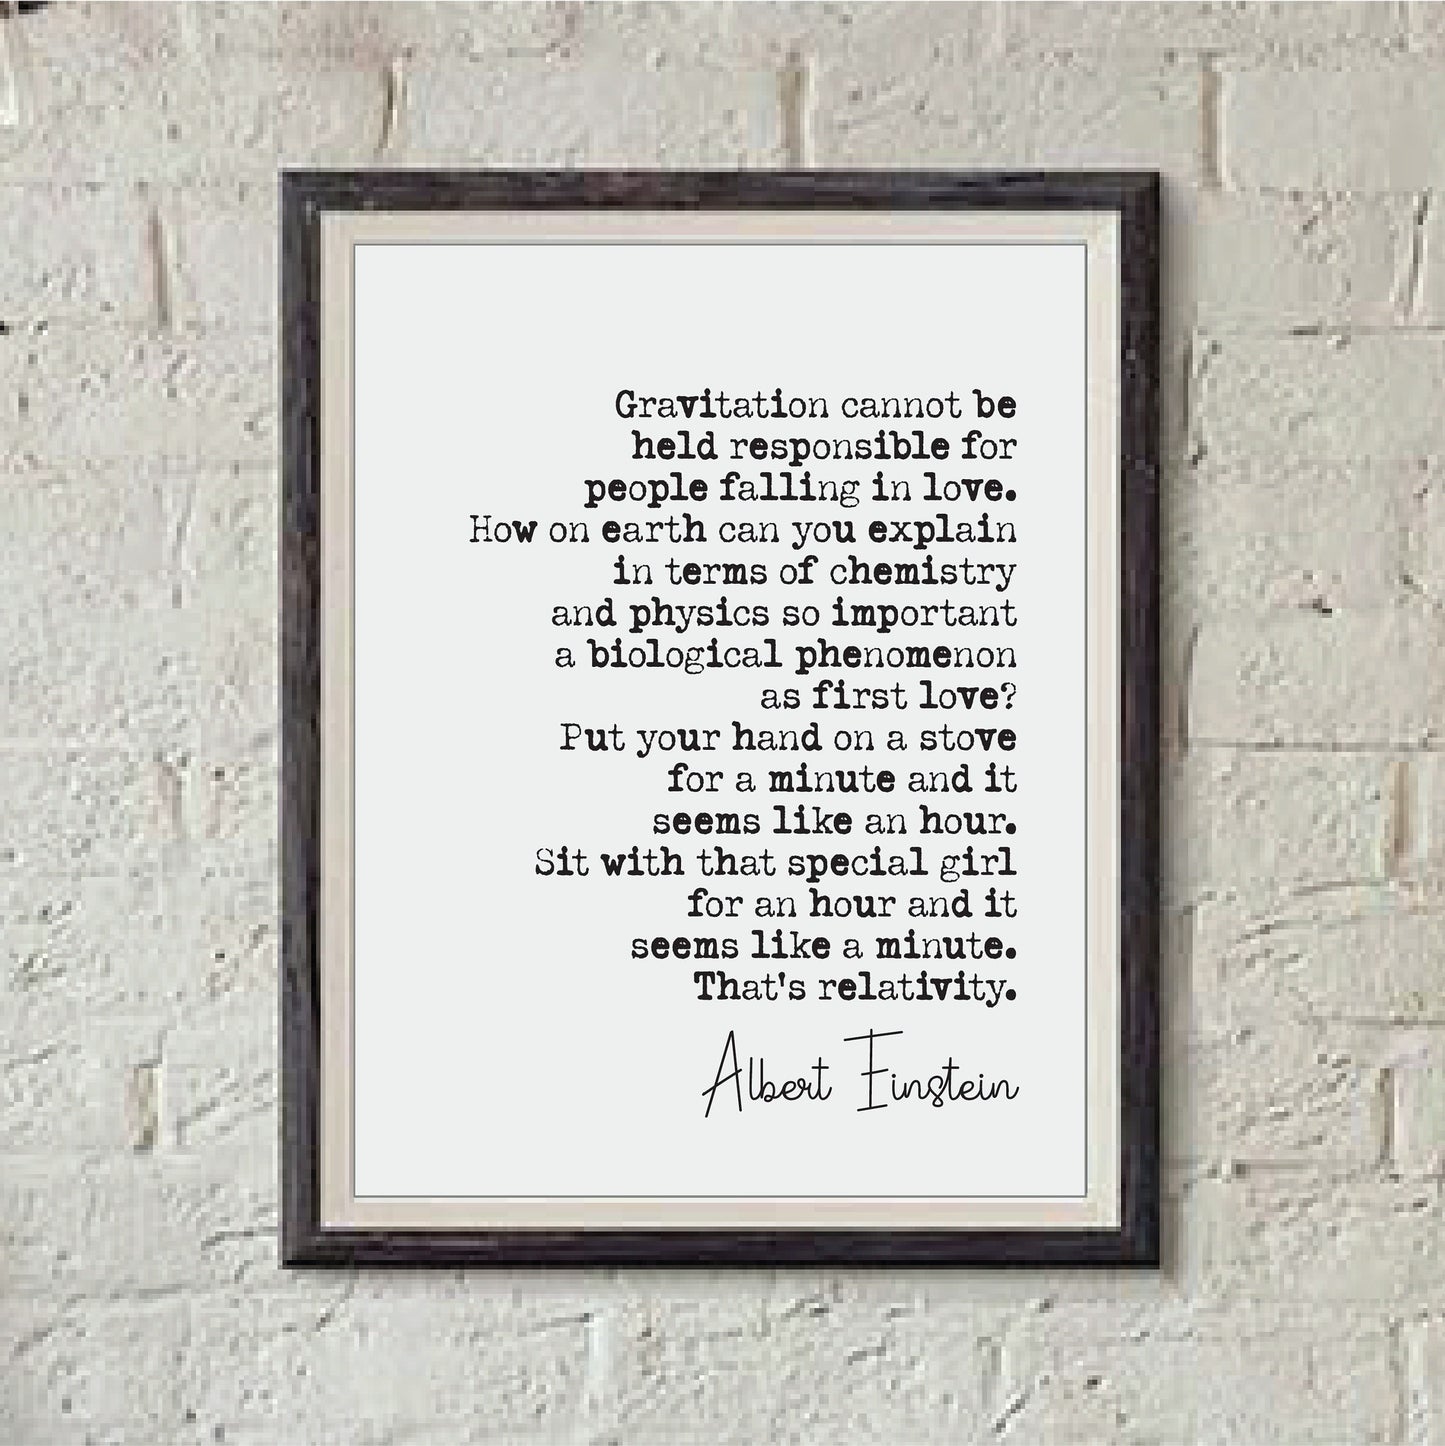 Gravitation cannot be
held responsible for
people falling in love.
How on earth can you explain
in terms of chemistry
and physics so important
a biological phenomenon
as first love?
Put your hand on a stove
for a minute and it
seems like an hour.
Sit with that special girl
for an hour and it
seems like a minute.
That's relativity.
Albert Einstein